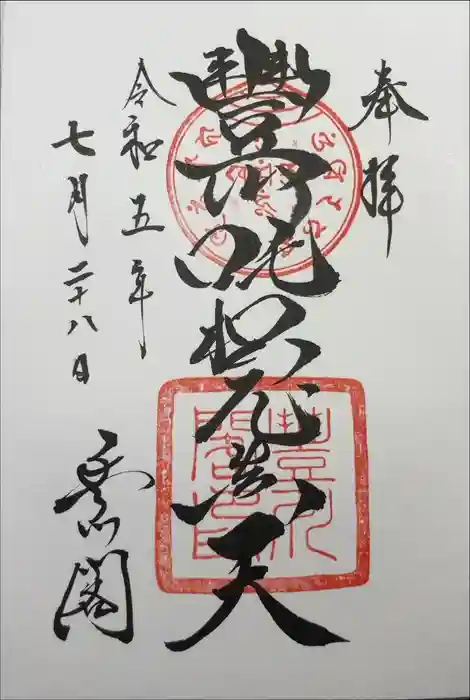 奉拝
豐川吒枳尼真天
令和五年
七月二十八日
豊川閣